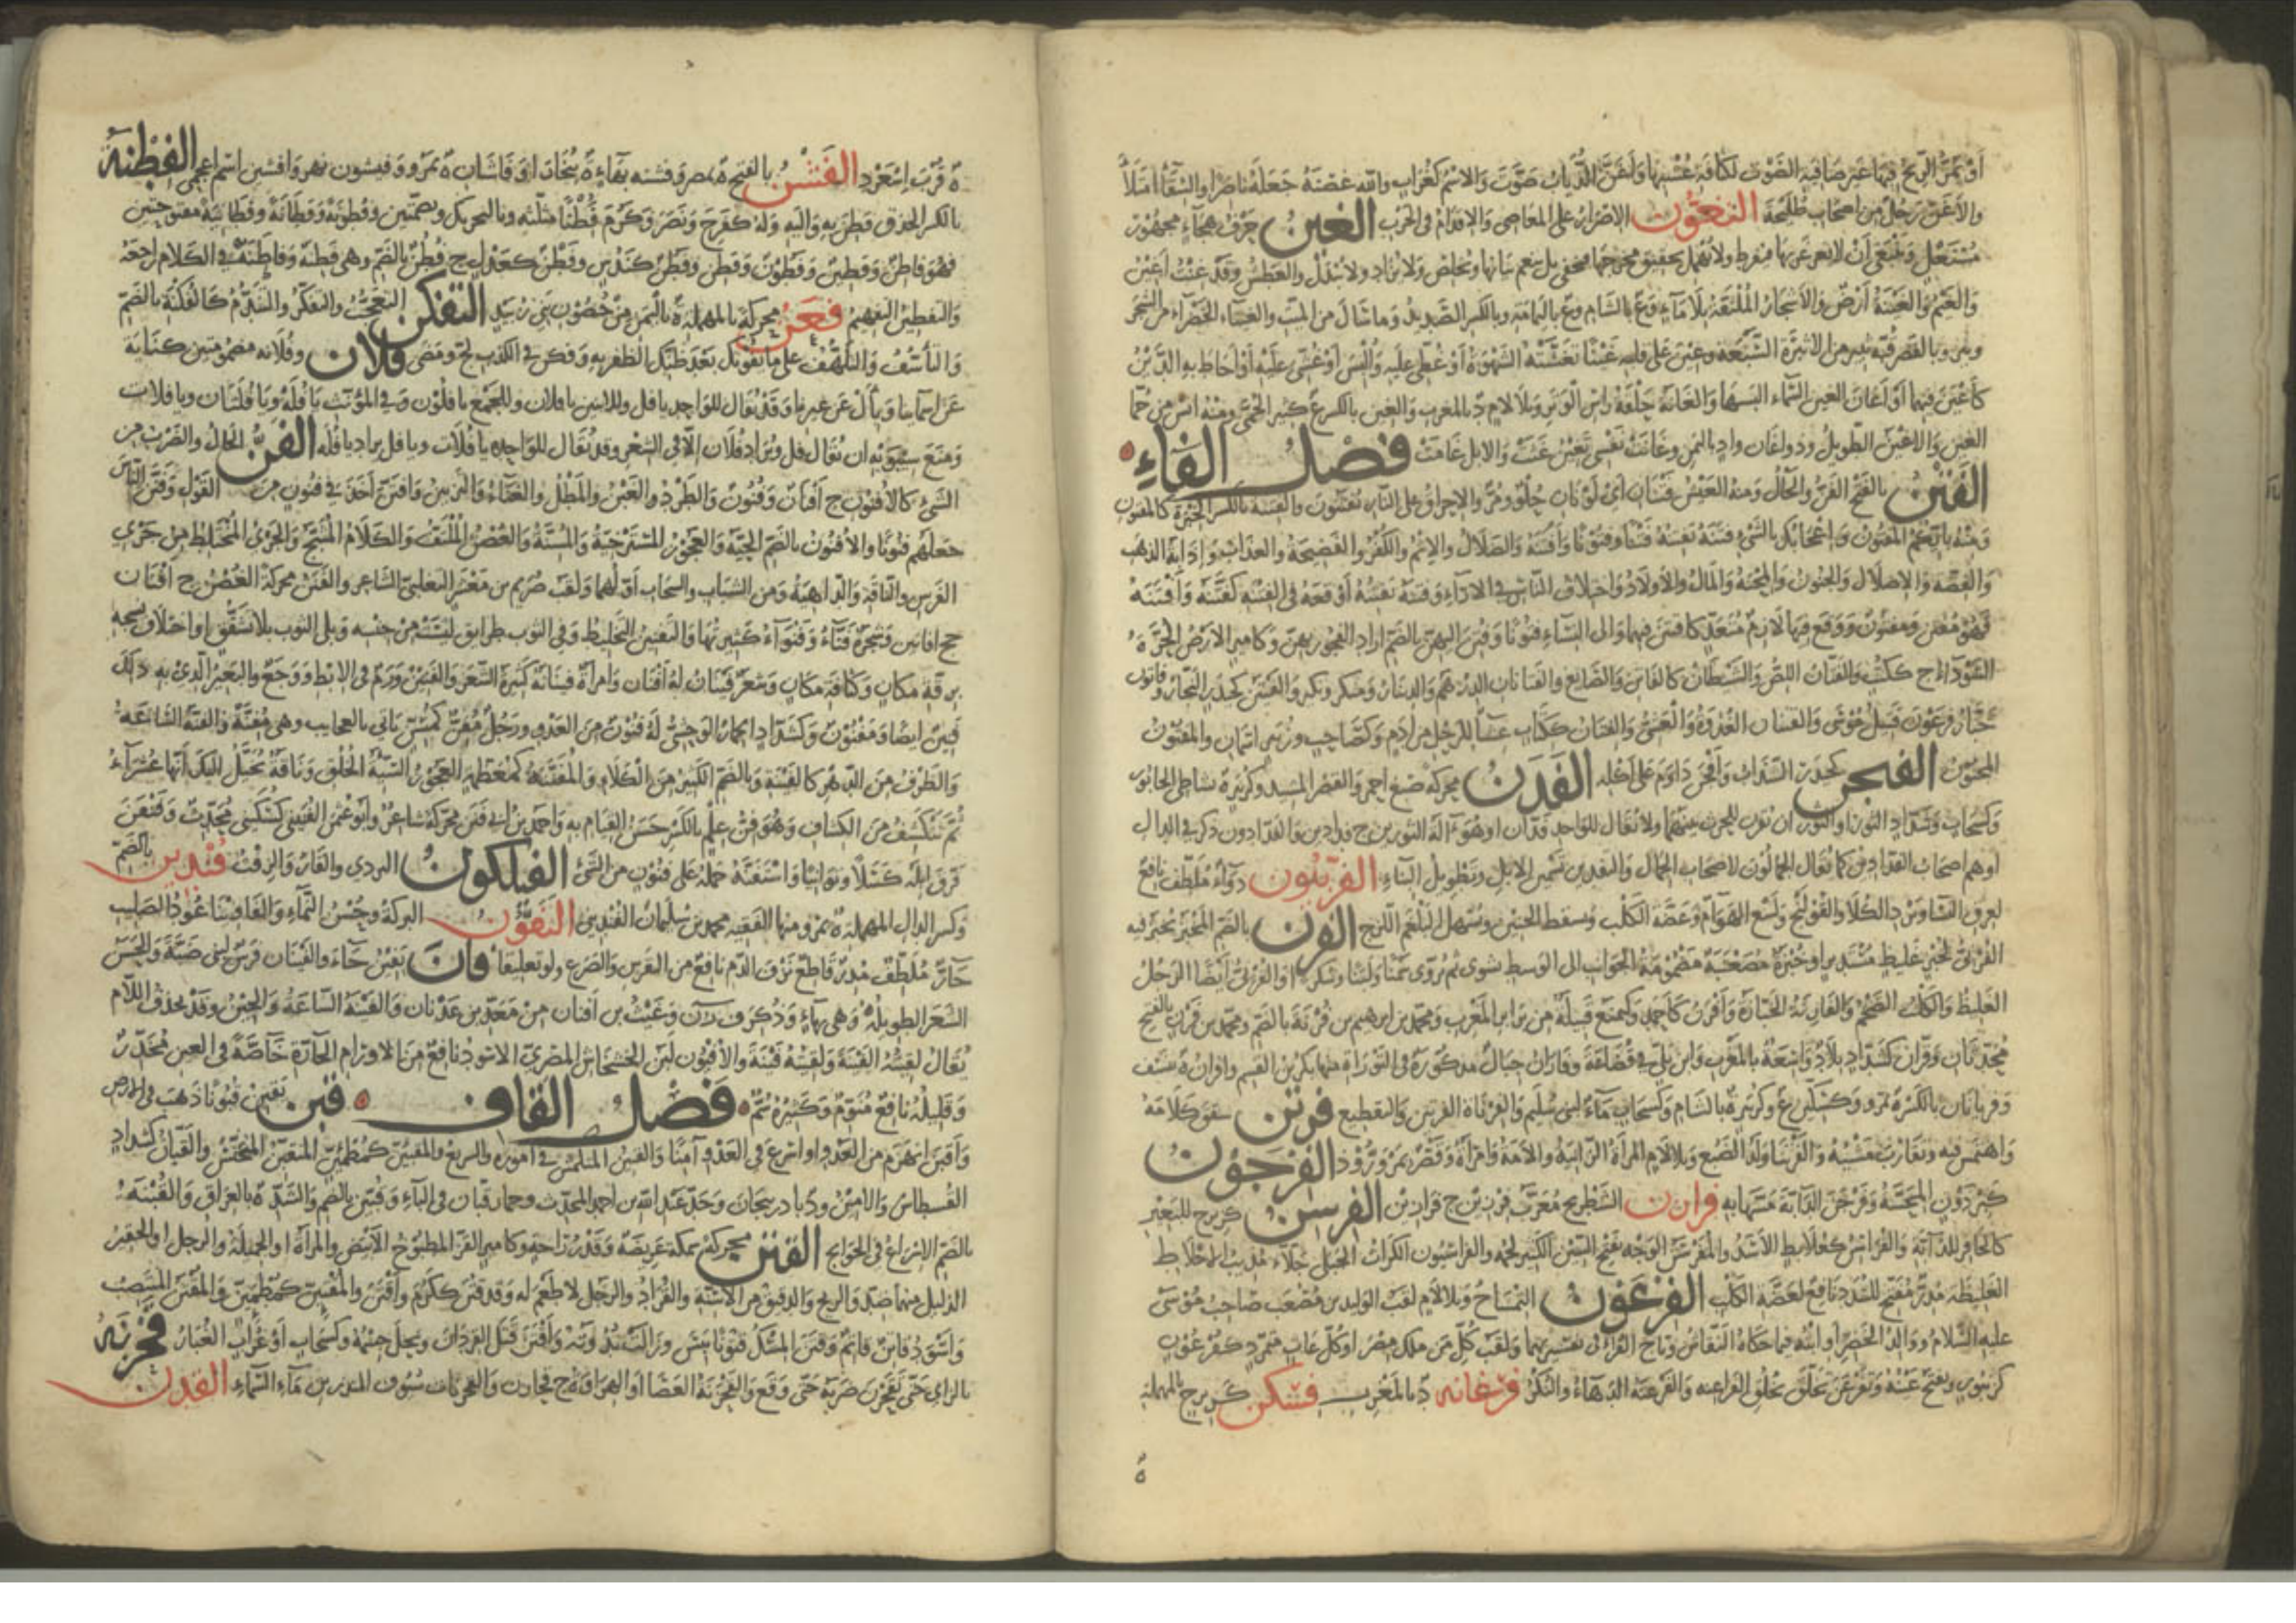 أو تمر الريح فيها غير صافية الصوت لكثافة عشبها ولغن الذباب صوت والاسم كغراب والله غصنه جعله ناضرا والسقاء امتلأ
والأغن رجل من أصحاب طليحة التغثون الإصرار على المعاصي والإقدام في الحرب الغين حرف هجاء مجهور
مستعل وينبغي أن لا يغرغر بها فيفرط ولا يهمل تحقيق مخرجها فيخفى بل ينعم بيانها ويخلص ولا تزاد ولا تبدل والعطش وقد غنت أغين
والغيم والغينة أرض والأشجار الملتفة بلا ماء وع بالشام وع باليمامة وبالكسر الصديد وما سال من الميت والغيناء الخضراء من الشجر
وبئر وبالقصر قنة ثبير من الأثبرة السبعة وغين على قلبه غينا تغشته الشهوة أو غطي عليه وألبس أو غشي عليه أو أحاط به الرين
كأغين فيهما أو أغان الغين السماء ألبسها والغانة حلقة رأس الوتر وبلا لام د بالمغرب والغين بالكسر ع كثير الحمى ومنه آنس من حمى
الغين والأغين الطويل وذو غان واد باليمن وغانت نفسي تغين غثت والإبل غامت فصل الفاء
الفتن بالفتح الفن والحال ومنه العيش فتنان أي لونان حلو ومر والإحراق على النار يفتنون والفتنة بالكسر الخبرة كالمفتون
ومنه بأيكم المفتون وإعجابك بالشيء فتنه يفتنه فتنا وفتونا وأفتنه والضلال والإثم والكفر والفضيحة والعذاب وإذابة الذهب
والفضة والإضلال والجنون والمحنة والمال والأولاد واختلاف الناس في الآراء وفتنه يفتنه أوقعه في الفتنة كفتنه وأفتنه
فهو مفتن ومفتون ووقع فيها لازم متعد كافتتن فيهما وإلى النساء فتونا وفتن إليهن بالضم أراد الفجور بهن وكأمير الأرض الحرة
السوداء ج ككتب والفتان اللص والشيطان كالفاتن والصائغ والفتانان الدرهم والدينار ومنكر ونكير والفيتن كحيدر النجار وفاتون
خباز فرعون قتيل موسى والفتنان الغدوة والعشي والفتان ككتاب غشاء للرحل من أدم وكصاحب وزبير اسمان والمفتون
المجنون الفيجن كحيدر السذاب وأفجن داوم على أكله الفدن محركة صبغ أحمر والقصر المشيد وكزبير ة بشاطئ الخابور
وكسحاب وشداد الثور أو الثوران يقرن للحرث بينهما ولا يقال للواحد فدان أو هو آلة الثورين ج فدادين والفدادون ذكر في الدال
أو هم أصحاب الفدادين كما يقال الجمالون لأصحاب الجمال والتفدين تسمين الإبل وتطويل البناء الفربيون دواء ملطف نافع
لعرق النسا وبرد الكلا والقولنج ولسع الهوام وعضة الكلب ويسقط الجنين ويسهل البلغم اللزج الفرن بالضم المخبز يخبز فيه
الفرني لخبز غليظ مستدير أو خبزة مصعنبة مضمومة الجوانب إلى الوسط تشوى ثم تروى سمنا ولبنا وسكرا والفرني أيضا الرجل
الغليظ والكلب الضخم والفارنة الخبازة وأفرن كأحمد وكمنع قبيلة من برابر المغرب ومحمد بن إبراهيم بن فرنة بالضم ومحمد بن فرن بالفتح
محدثان وفران كشداد بلاد واسعة بالمغرب وابن بلي في قضاعة وفاران جبال مذكورة في التوراة منها بكر بن القسم وأفران ة بنسف
وفريانان بالكسر ة بمرو وكسكين ع وكزبير ة بالشام وكسحاب ماء لبني سليم والفرناة الفرتين والتقطيع فرتن شقق كلامه
واهتمس فيه وتقارب مشيه والفرتنا ولد الضبع وبلا لام المرأة الزانية والأمة وامرأة وقصر بمرو روذ الفرجون
كبرذون المحسة وفرجن الدابة حسها به فرزان الشطرنج معرب فرزين ج فرازين الفرسن كزبرج للبعير
كالحافر للدابة والفراسن كعلابط الأسد والمفرسن الوجه بفتح السين الكثير لحمه والفراسيون الكراث الجبلي جلاء مذيب للأخلاط
الغليظة مدر مفتح للسدد نافع لعضة الكلب الفرعون التمساح وبلا لام لقب الوليد بن مصعب صاحب موسى
عليه السلام ووالد الخضر أو ابنه فيما حكاه النقاش وتاج القراء في تفسيريهما ولقب كل من ملك مصر أو كل عات متمرد كفرعون
كزنبور وتفتح عينه وتفرعن تخلق بخلق الفراعنة والفرعنة الدهاء والنكر فرغانه د بالمغرب فشكن كزبرج بالمهملة
ة قرب إسعرد الفشن بالفتح ة بمصر وفشنه بفاء ة ببخارا أو فاشان ة بمرو وفيشون نهر وأفشين اسم أعجمي الفطنة
بالكسر الحذق فطن به وإليه وله كفرح ونصر وكرم فطنا مثلثة وبالتحريك وبضمتين وفطونة وفطانة وفطانية مفتوحتين
فهو فاطن وفطين وفطون وفطن وفطن كندس وفطن كعدل ج فطن بالضم وهي فطنة وفاطنه في الكلام راجعه
والتفطين التفهيم فعن محركة بالمهملة ة باليمن من حصون بني زبيد التفكن التعجب والتفكر والتندم كالفكنة بالضم
والتأسف والتلهف على ما يفوتك بعد ظنك الظفر به وفكن في الكذب لج ومضى فلان وفلانه مضمومتين كناية
عن أسمائنا وبأل عن غيرنا وقد يقال للواحد يا فل وللاثنين يا فلان وللجمع يا فلون وفي المؤنث يا فلة ويا فلتان ويا فلات
ومنع سيبويه أن يقال فل ويراد فلان إلا في الشعر وقد يقال للواحدة يا فلات ويا فل يراد يا فلة الفن الحال والضرب من
الشيء كالأفنون ج أفنان وفنون والطرد والغبن والمطل والعناء والتزيين وافتن أخذ في فنون من القول وفنن الناس
جعلهم فنونا والأفنون بالضم الحية والعجوز المسترخية والمسنة والغصن الملتف والكلام المثبج والجري المختلط من جري
الفرس والناقة والداهية ومن الشباب والسحاب أولهما ولقب صريم بن معشر التغلبي الشاعر والفنن محركة الغصن ج أفنان
جج أفانين وشجرة فناء وفنواء كثيرتها والتفنين التخليط وفي الثوب طرائق ليست من جنسه وبلى الثوب بلا تشقق أو اختلاف نسجه
برقة مكان وكثافة مكان وشعر فينان له أفنان وامرأة فينانة كثيرة الشعر والفنين ورم في الإبط ووجع والبعير الذي به ذلك
فنين أيضا ومفنون وكشداد الحمار الوحشي له فنون من العدو ورجل مفن كمسن يأتي بالعجائب وهي مفنة والفنة الساعة
والطرف من الدهر كالفينة وبالضم الكثير من الكلإ والمفننة كمعظمة العجوز السيئة الخلق وناقة يخيل إليك أنها عشراء
ثم تنكشف من الكشاف وهو فن علم بالكسر حسن القيام به وأحمد بن أبي فنن محركة شاعر وأبو عثمان الفنيني كسكيني محدث وفنفن
فرق إبله كسلا وتوانيا واستفنه حمله على فنون من الشيء الفيلكون البردي والقار والزفت فندين بالضم
وكسر الدال المهملة ة بمرو منها الفقيه محمد بن سليمان الفنديني التفون البركة وحسن النماء والفاونيا عود الصليب
حار ملطف مدر قاطع نزف الدم نافع من النقرس والصرع ولو تعليقا فان يفين جاء والفينان فرس لبني ضبة والحسن
الشعر الطويله وهي بهاء وذكر في ف ن ن وغيث بن أفنان من معد بن عدنان والفينة الساعة والحين وقد تحذف اللام
يقال لقيته الفينة ولقيته فينة والأفيون لبن الخشخاش المصري الأسود نافع من الأورام الحارة خاصة في العين مخدر
وقليله نافع منوم وكثيره سم فصل القاف قبن يقبن قبونا ذهب في الأرض
وأقبن انهزم من العدو أو أسرع في العدو آمنا والقبين المنكمش في أموره والسريع والمقبئن كمطمئن المنقبض المنخنس والقبان كشداد
القسطاس والأمين ود بأذربيجان وجد عبد الله بن أحمد المحدث وحمار قبان في الباء وقبين بالضم والشد ة بالعراق والقبنة
بالضم الإسراع في الحوائج القتن محركة سمكة عريضة وقدر راحة وكأمير القراد المطبوخ الأبيض والمرأة أو الجميلة والرجل أو الحقير
الذليل منهما ضد والرمح والدقيق من الأسنة والقراد والرجل لا طعم له وقد قتن ككرم وأقتن والمقتين كمطمئن والمقتن المنتصب
وأسود قاتن قاتم وقتن المسك قتونا يبس وزالت ندوته وأقتن قتل القردان ونحل جسمه وكسحاب أو غراب الغبار قحزنه
بالزاي حتى تقحزن ضربه حتى وقع والقحزنة العصا أو الهراوة ج قحازن والقحزنات سيوف المنذر بن ماء السماء القدن